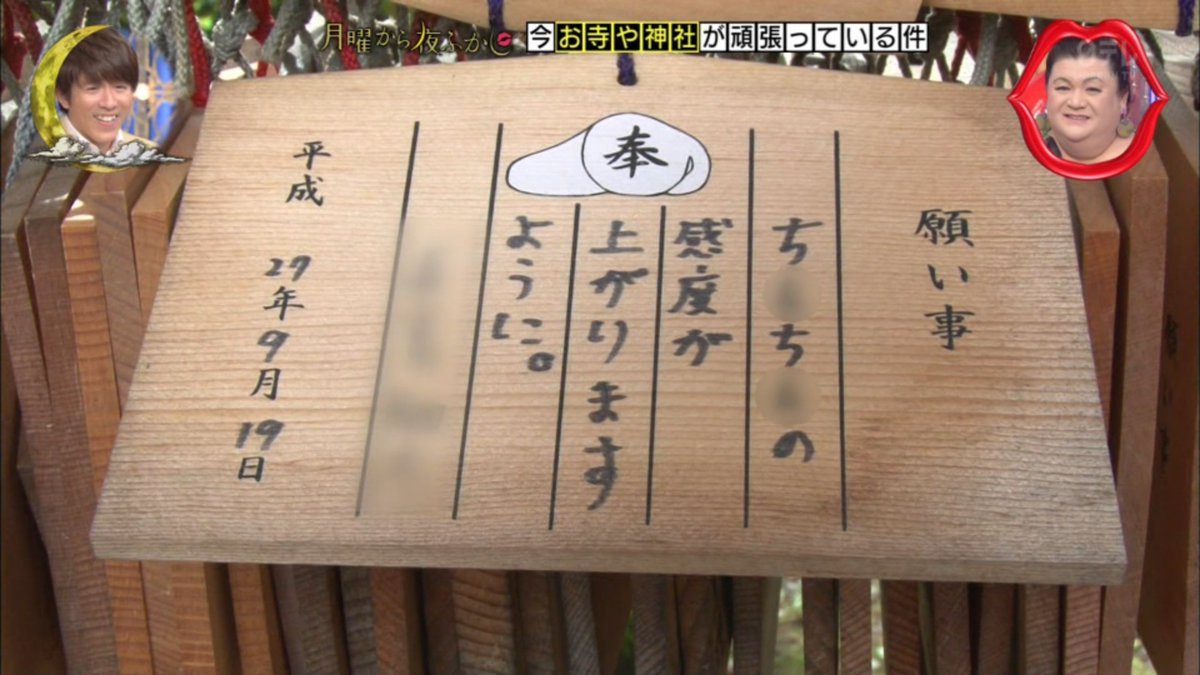 月曜から夜ふかし
今お寺や神社が頑張っている件
奉
願い事
ち ち の
感度が
上がります
ように。
平成 27年9月19日